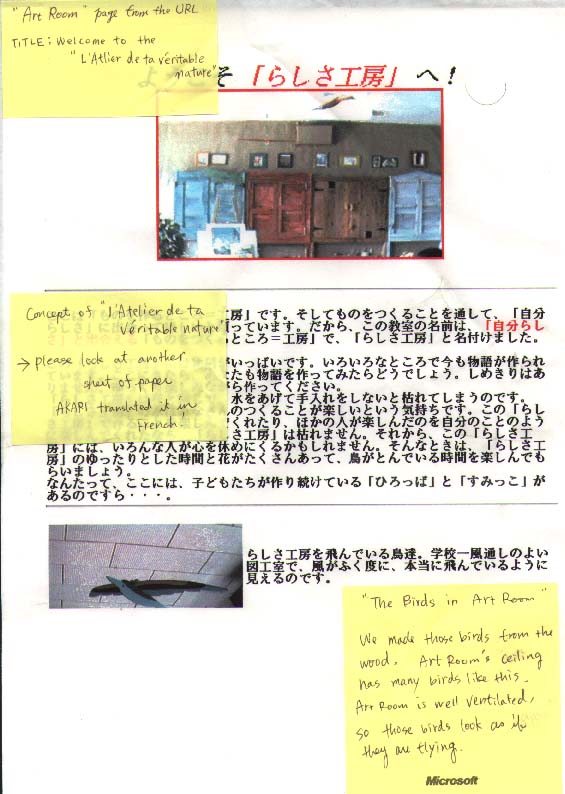 "Art Room" page from the URL
TITLE: Welcome to the
"L'Atlier de ta véritable nature"
ようこそ「らしさ工房」へ!
Concept of "l'Atelier de ta
véritable nature"
→ please look at another
sheet of paper
AKARI translated it in
French!
工房」です。そしてものをつくることを通して、「自分
っています。だから、この教室の名前は、「自分らし
ところ＝工房」で、「らしさ工房」と名付けました。
がいっぱいです。いろいろなところで今も物語が作られ
たも物語を作ってみたらどうでしょう。しめきりはあ
ら作ってください。
水をあげて手入れをしないと枯れてしまうのです。
のつくることが楽しいという気持ちです。この「らし
くれたり、ほかの人が楽しんだのを自分のことのよう
さ工房」は枯れません。それから、この「らしさ工
房」には、いろんな人が心を休めにくるかもしれません。そんなときは、「らしさ工
房」のゆったりとした時間と花がたくさんあって、鳥がとんでいる時間を楽しんでも
らいましょう。
なんたって、ここには、子どもたちが作り続けている「ひろっぱ」と「すみっこ」が
あるのですら・・・。
らしさ工房を飛んでいる鳥達。学校一風通しのよい
図工室で、風がふく度に、本当に飛んでいるように
見えるのです。
"The Birds in Art Room"
We made those birds from the
wood. Art Room's ceiling
has many birds like this.
Art Room is well ventilated,
so those birds look as if
they are flying.
Microsoft